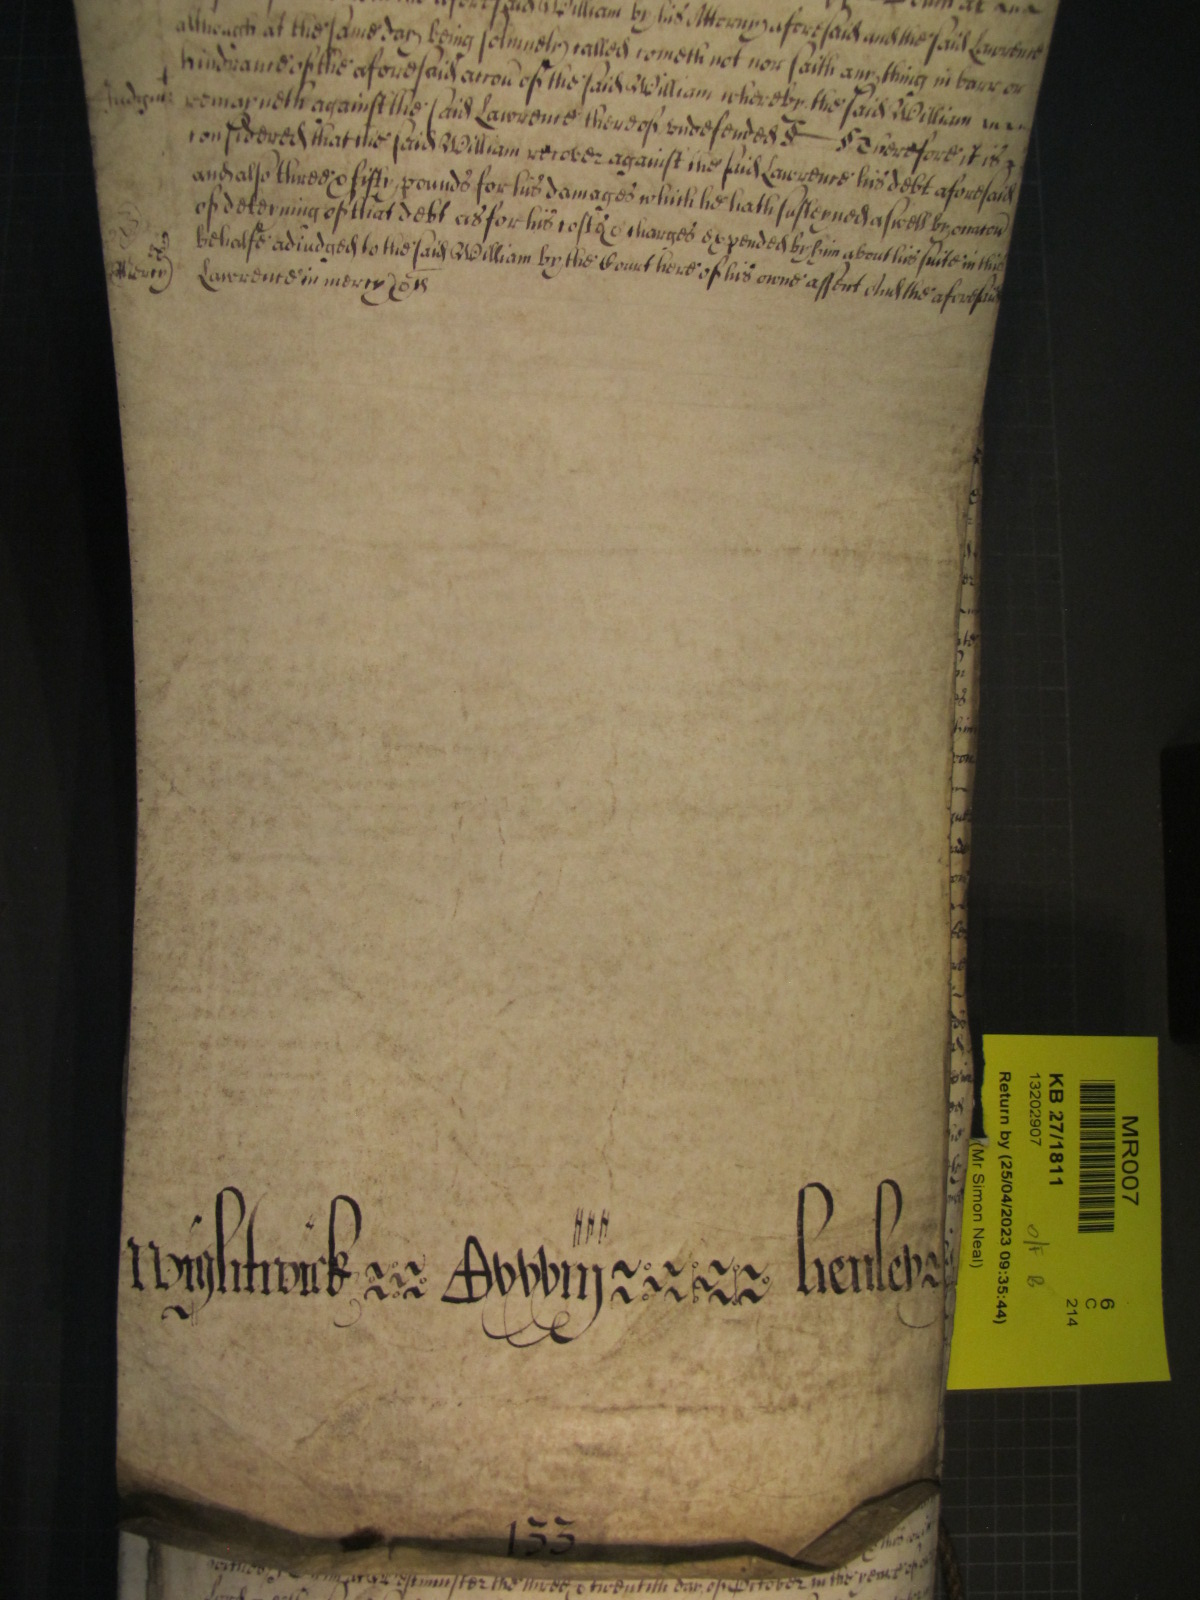 aforesaid William by his Attorney aforesaid and the said Lawrence
although at the same day being solemnely called cometh not nor saith any thing in barr or
hindrance of the aforesaid accon of the said William whereby the said William
Judgmt remayneth against the said Lawrence thereof undefended Therefore it is
considered that the said William recover against the said Lawrence his debt aforesaid
and also three & fifty pounds for his damages which he hath susteyned aswell by occacon
of deteyning of that debt as for his costs & charges expended by him about his suite in this
behalfe adiudged to the said William by the Court here of his owne assent And the aforesaid
Mercy Lawrence in mercy &c
Wightwick Henley
155
Westminster the three & twentith day of October in the
MR007
KB 27/1811
13202907
Return by (25/04/2023 09:35:44)
(Mr Simon Neal)
6
C
214